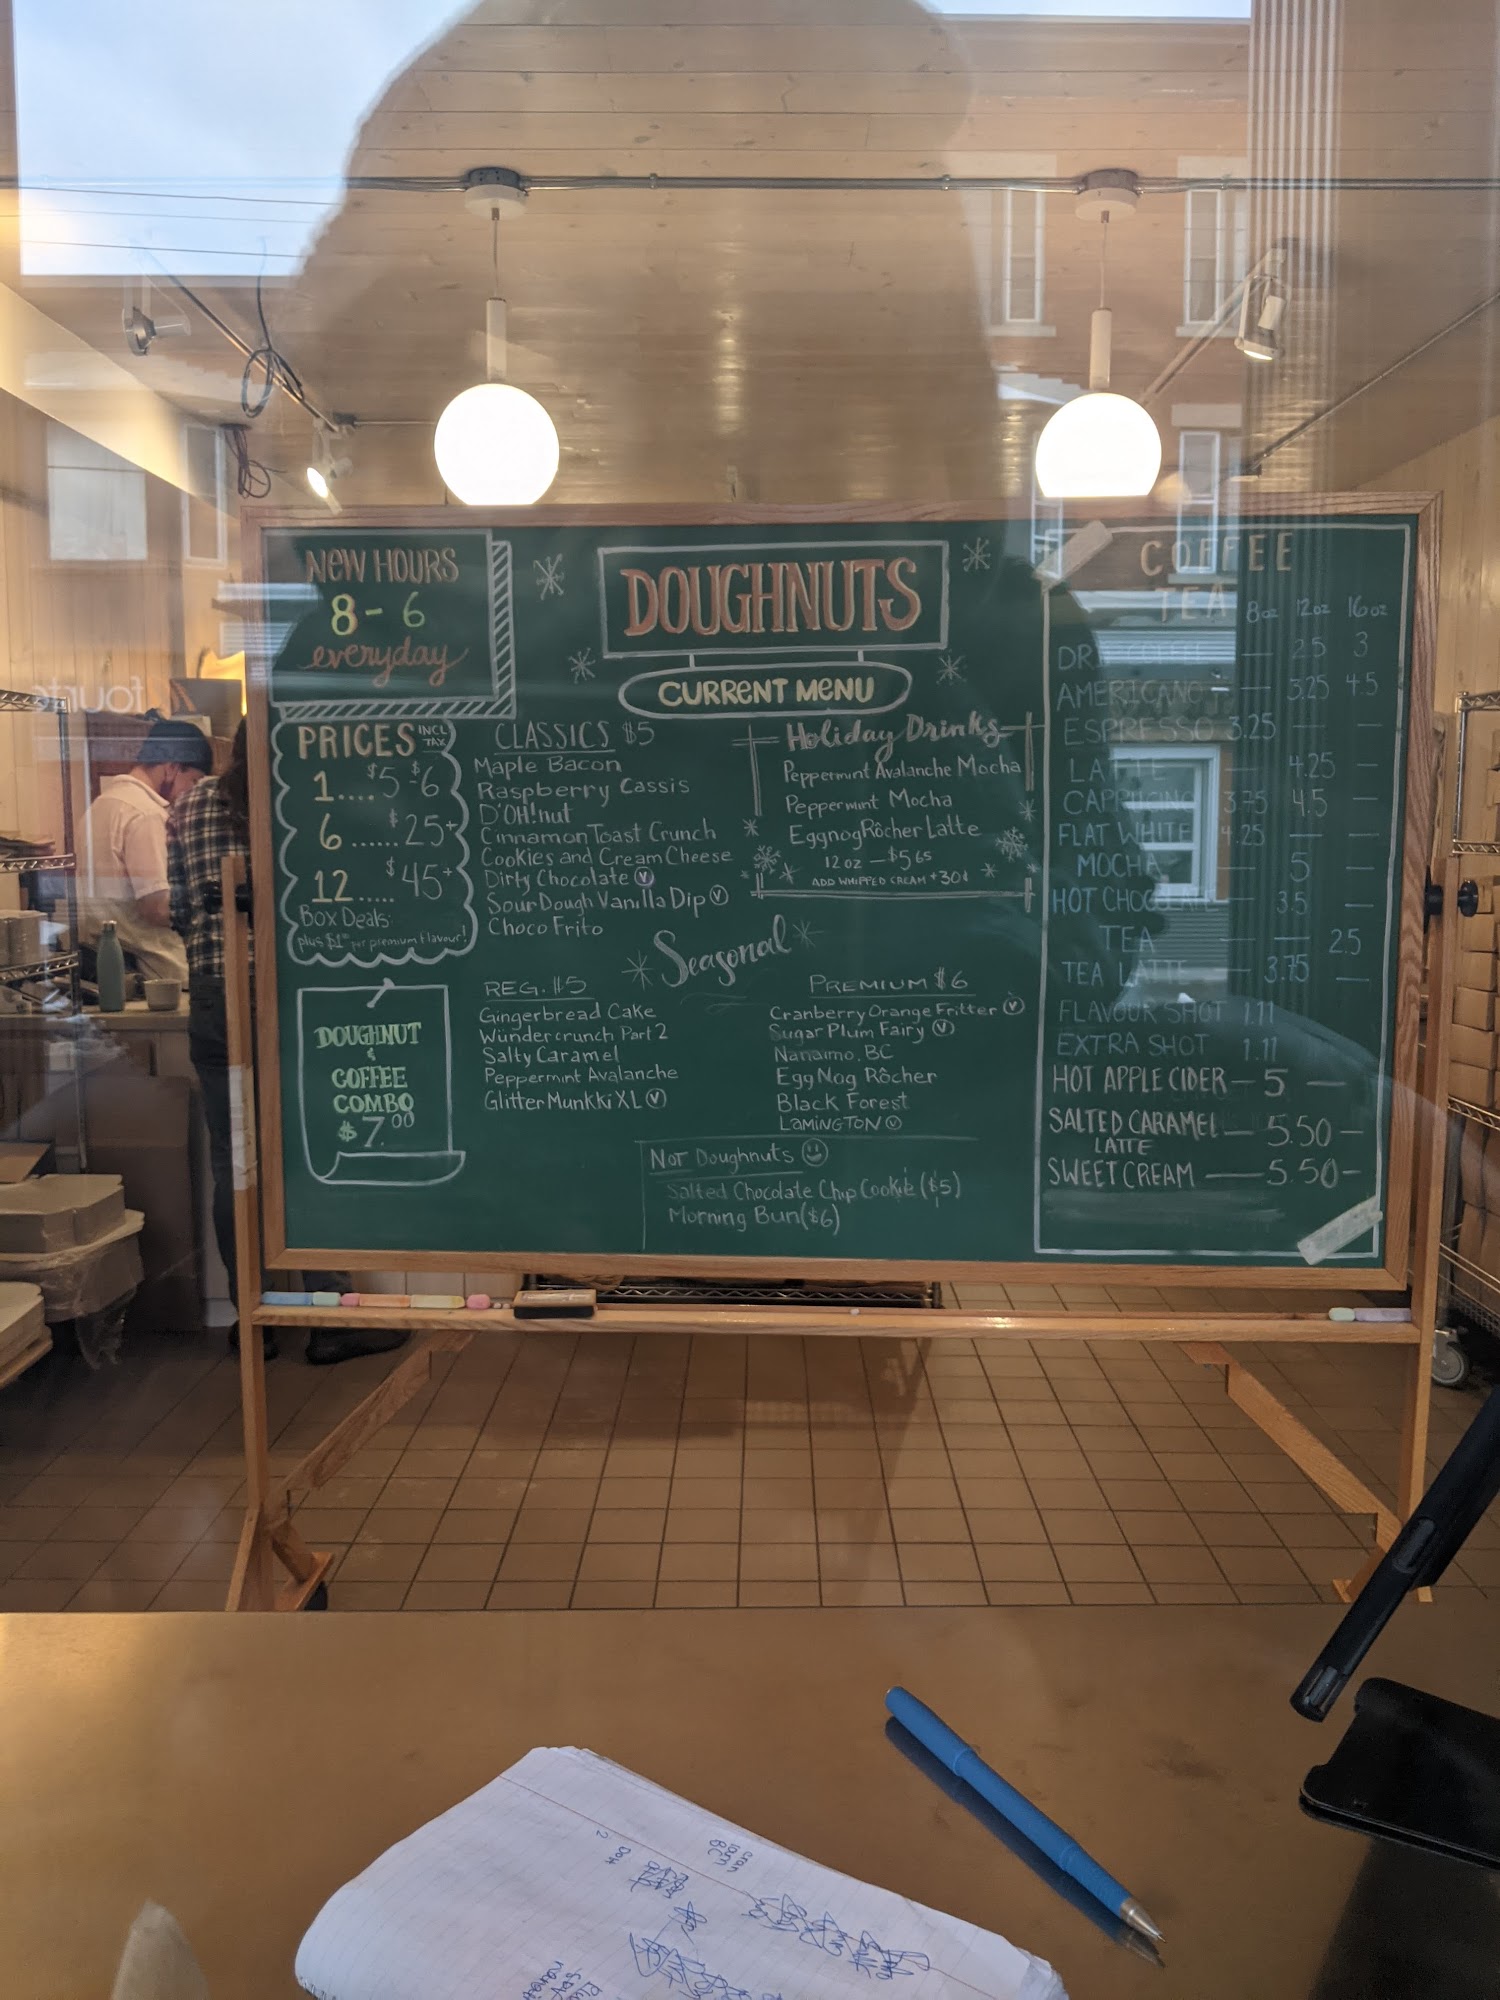 NEW HOURS
8 - 6
everyday
DOUGHNUTS
CURRENT MENU
PRICES INCL TAX
1.... $5 - $6
6...... $25+
12..... $45+
Box Deals:
plus $1 per premium flavour!
DOUGHNUT
&
COFFEE
COMBO
$7.00
CLASSICS $5
Maple Bacon
Raspberry Cassis
D'OH!nut
Cinnamon Toast Crunch
Cookies and Cream Cheese
Dirty Chocolate V
Sour Dough Vanilla Dip V
Choco Frito
Holiday Drinks
Peppermint Avalanche Mocha
Peppermint Mocha
Eggnog Rôcher Latte
12 oz — $5.65
ADD WHIPPED CREAM + 30¢
Seasonal
REG. $5
Gingerbread Cake
Wündercrunch Part 2
Salty Caramel
Peppermint Avalanche
Glitter Munkki XL V
PREMIUM $6
Cranberry Orange Fritter V
Sugar Plum Fairy V
Nanaimo, BC
Egg Nog Rôcher
Black Forest
LAMINGTON V
NOT Doughnuts
Salted Chocolate Chip Cookie ($5)
Morning Bun ($6)
COFFEE
TEA 8oz 12oz 16oz
— 2.5 3
AMERICANO — 3.25 4.5
ESPRESSO 3.25 — —
LATTE — 4.25 —
CAPPUCINO 3.75 4.5 —
FLAT WHITE 4.25 — —
MOCHA — 5 —
HOT CHOCOLATE — 3.5 —
TEA — — 2.5
TEA LATTE — 3.75 —
FLAVOUR SHOT 1.11
EXTRA SHOT 1.11
HOT APPLE CIDER — 5 —
SALTED CARAMEL — 5.50 —
LATTE
SWEET CREAM — 5.50 —
cran
lam
BC
2 DOH